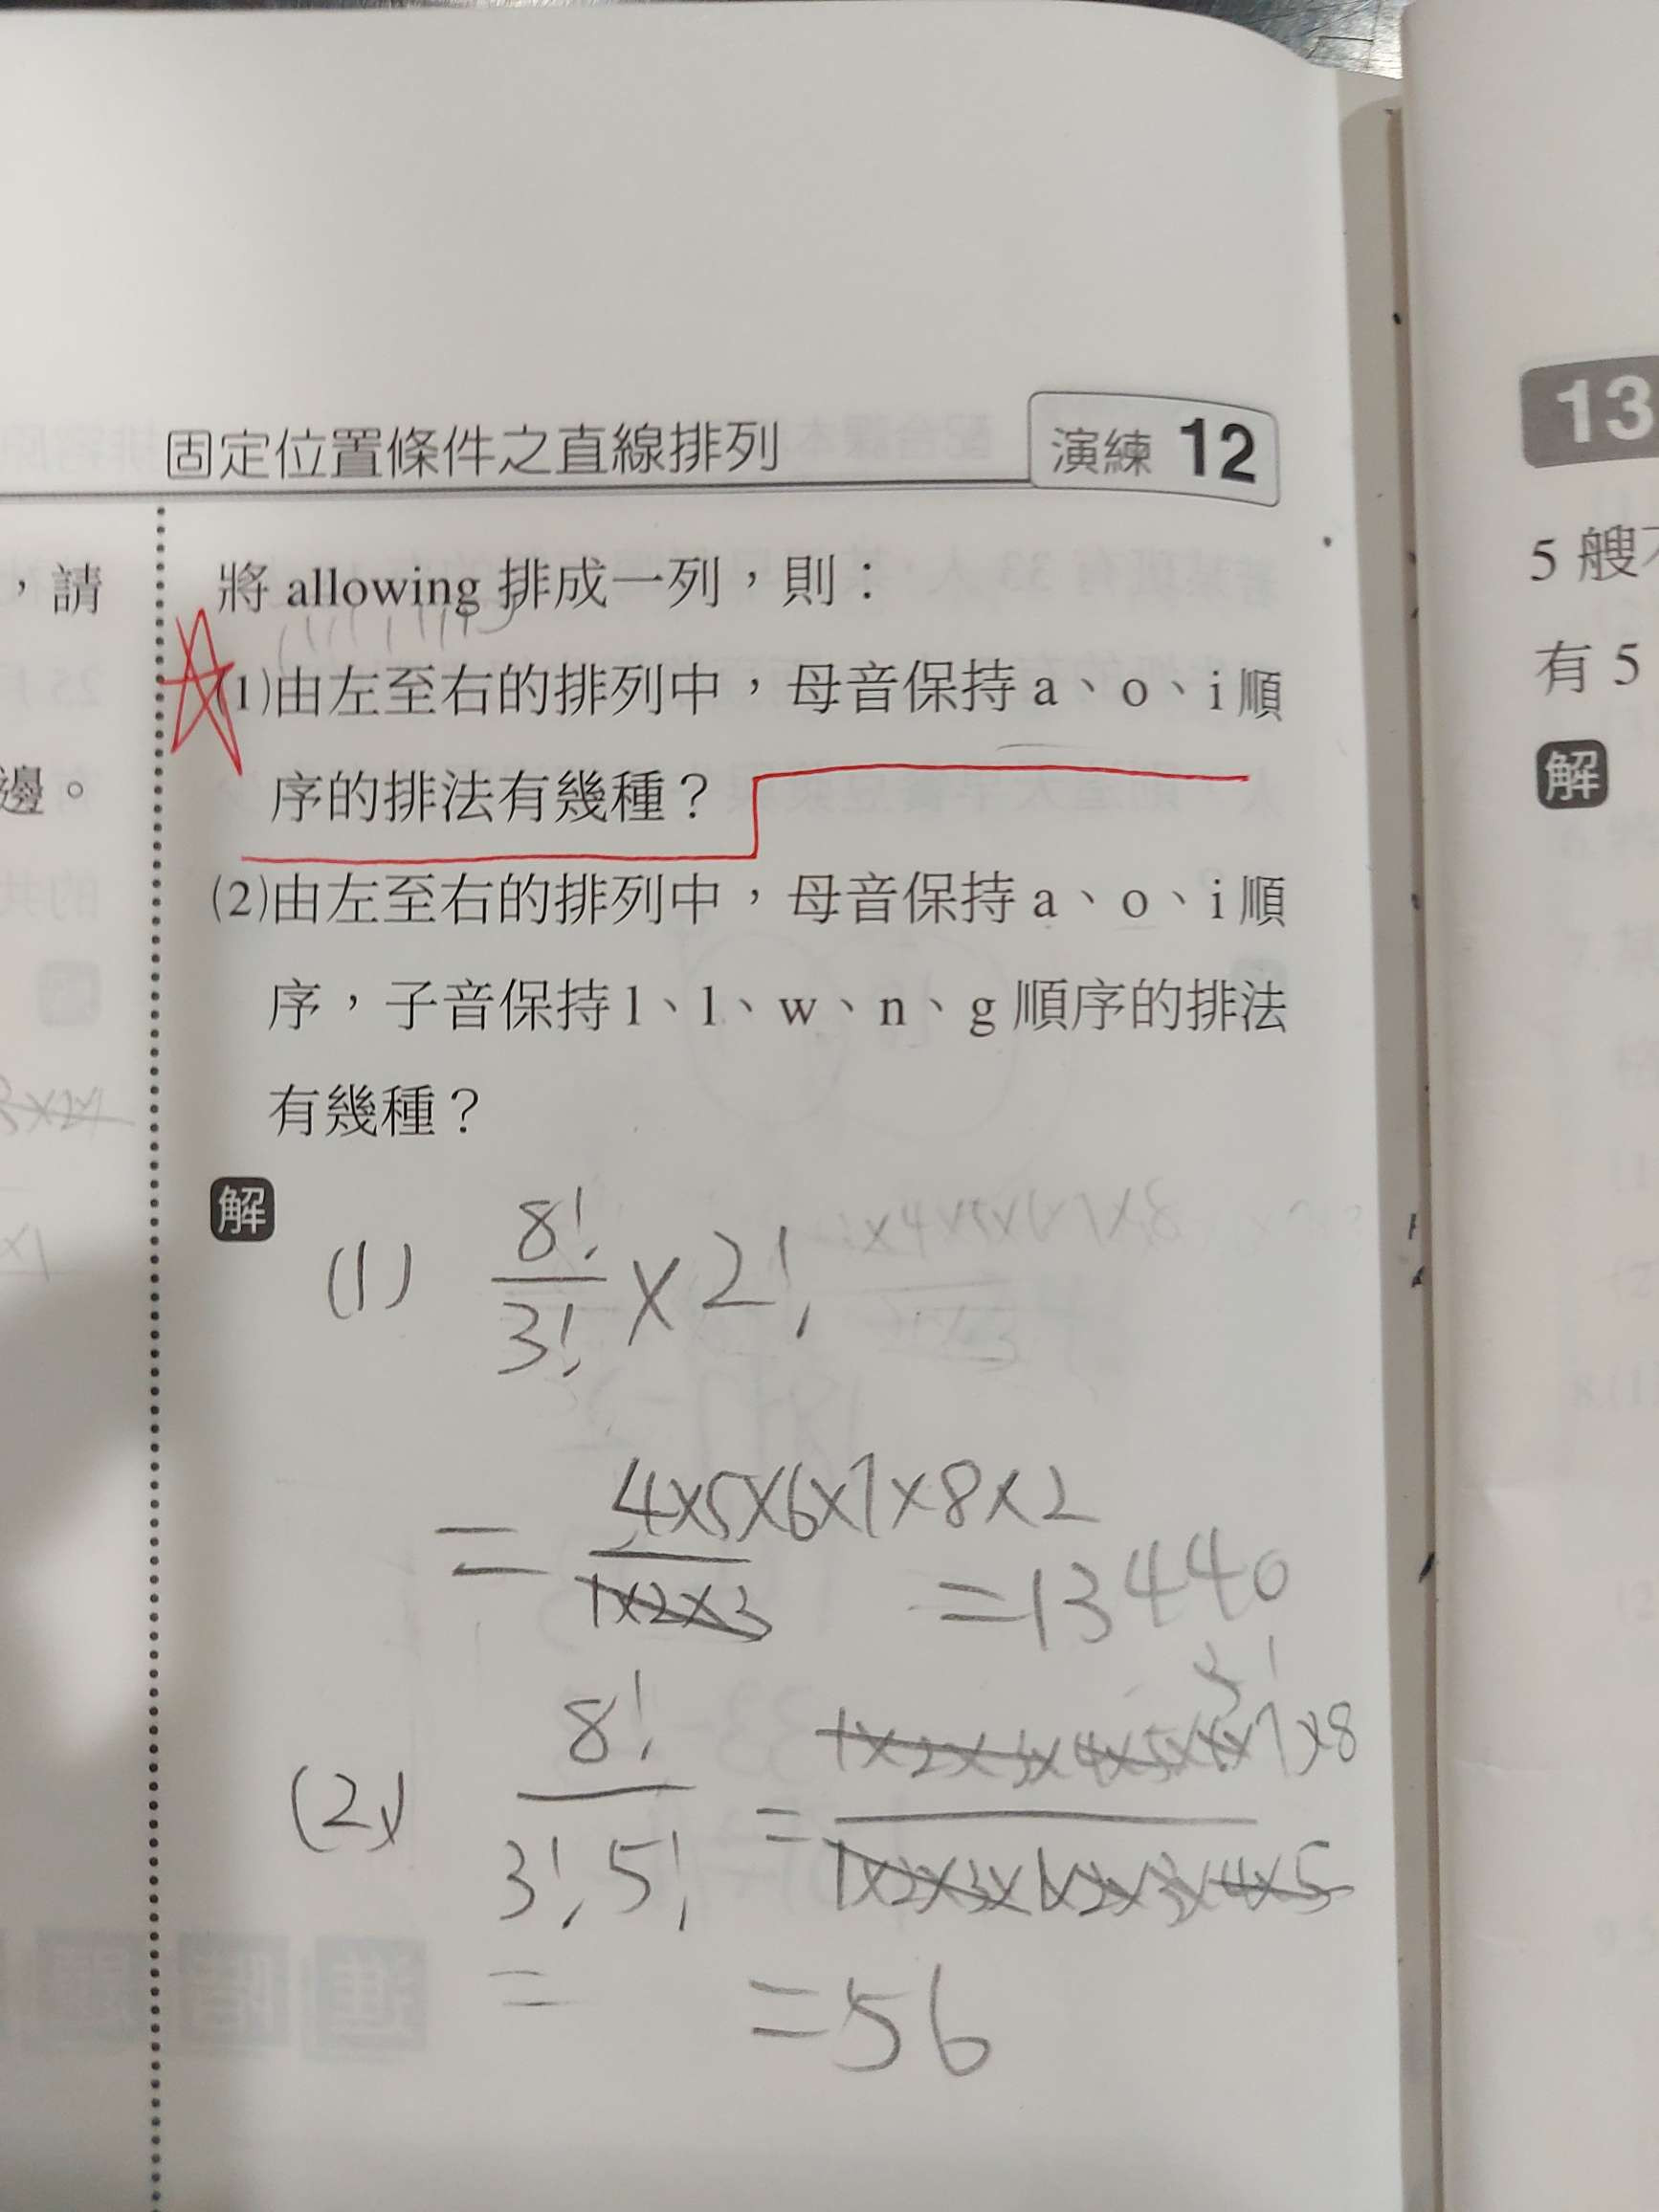 固定位置條件之直線排列 演練 12
，請
邊。
將 allowing 排成一列，則：
(1)由左至右的排列中，母音保持 a、o、i 順
序的排法有幾種？
(2)由左至右的排列中，母音保持 a、o、i 順
序，子音保持 l、l、w、n、g 順序的排法
有幾種？
解
(1) 8!/3! × 2!
= 4×5×6×7×8×2 / 1×2×3 = 13440
(2) 8!/3!5! = 1×2×3×4×5×6×7×8 / 1×2×3×1×2×3×4×5
= = 56
13
5 艘
有 5
解